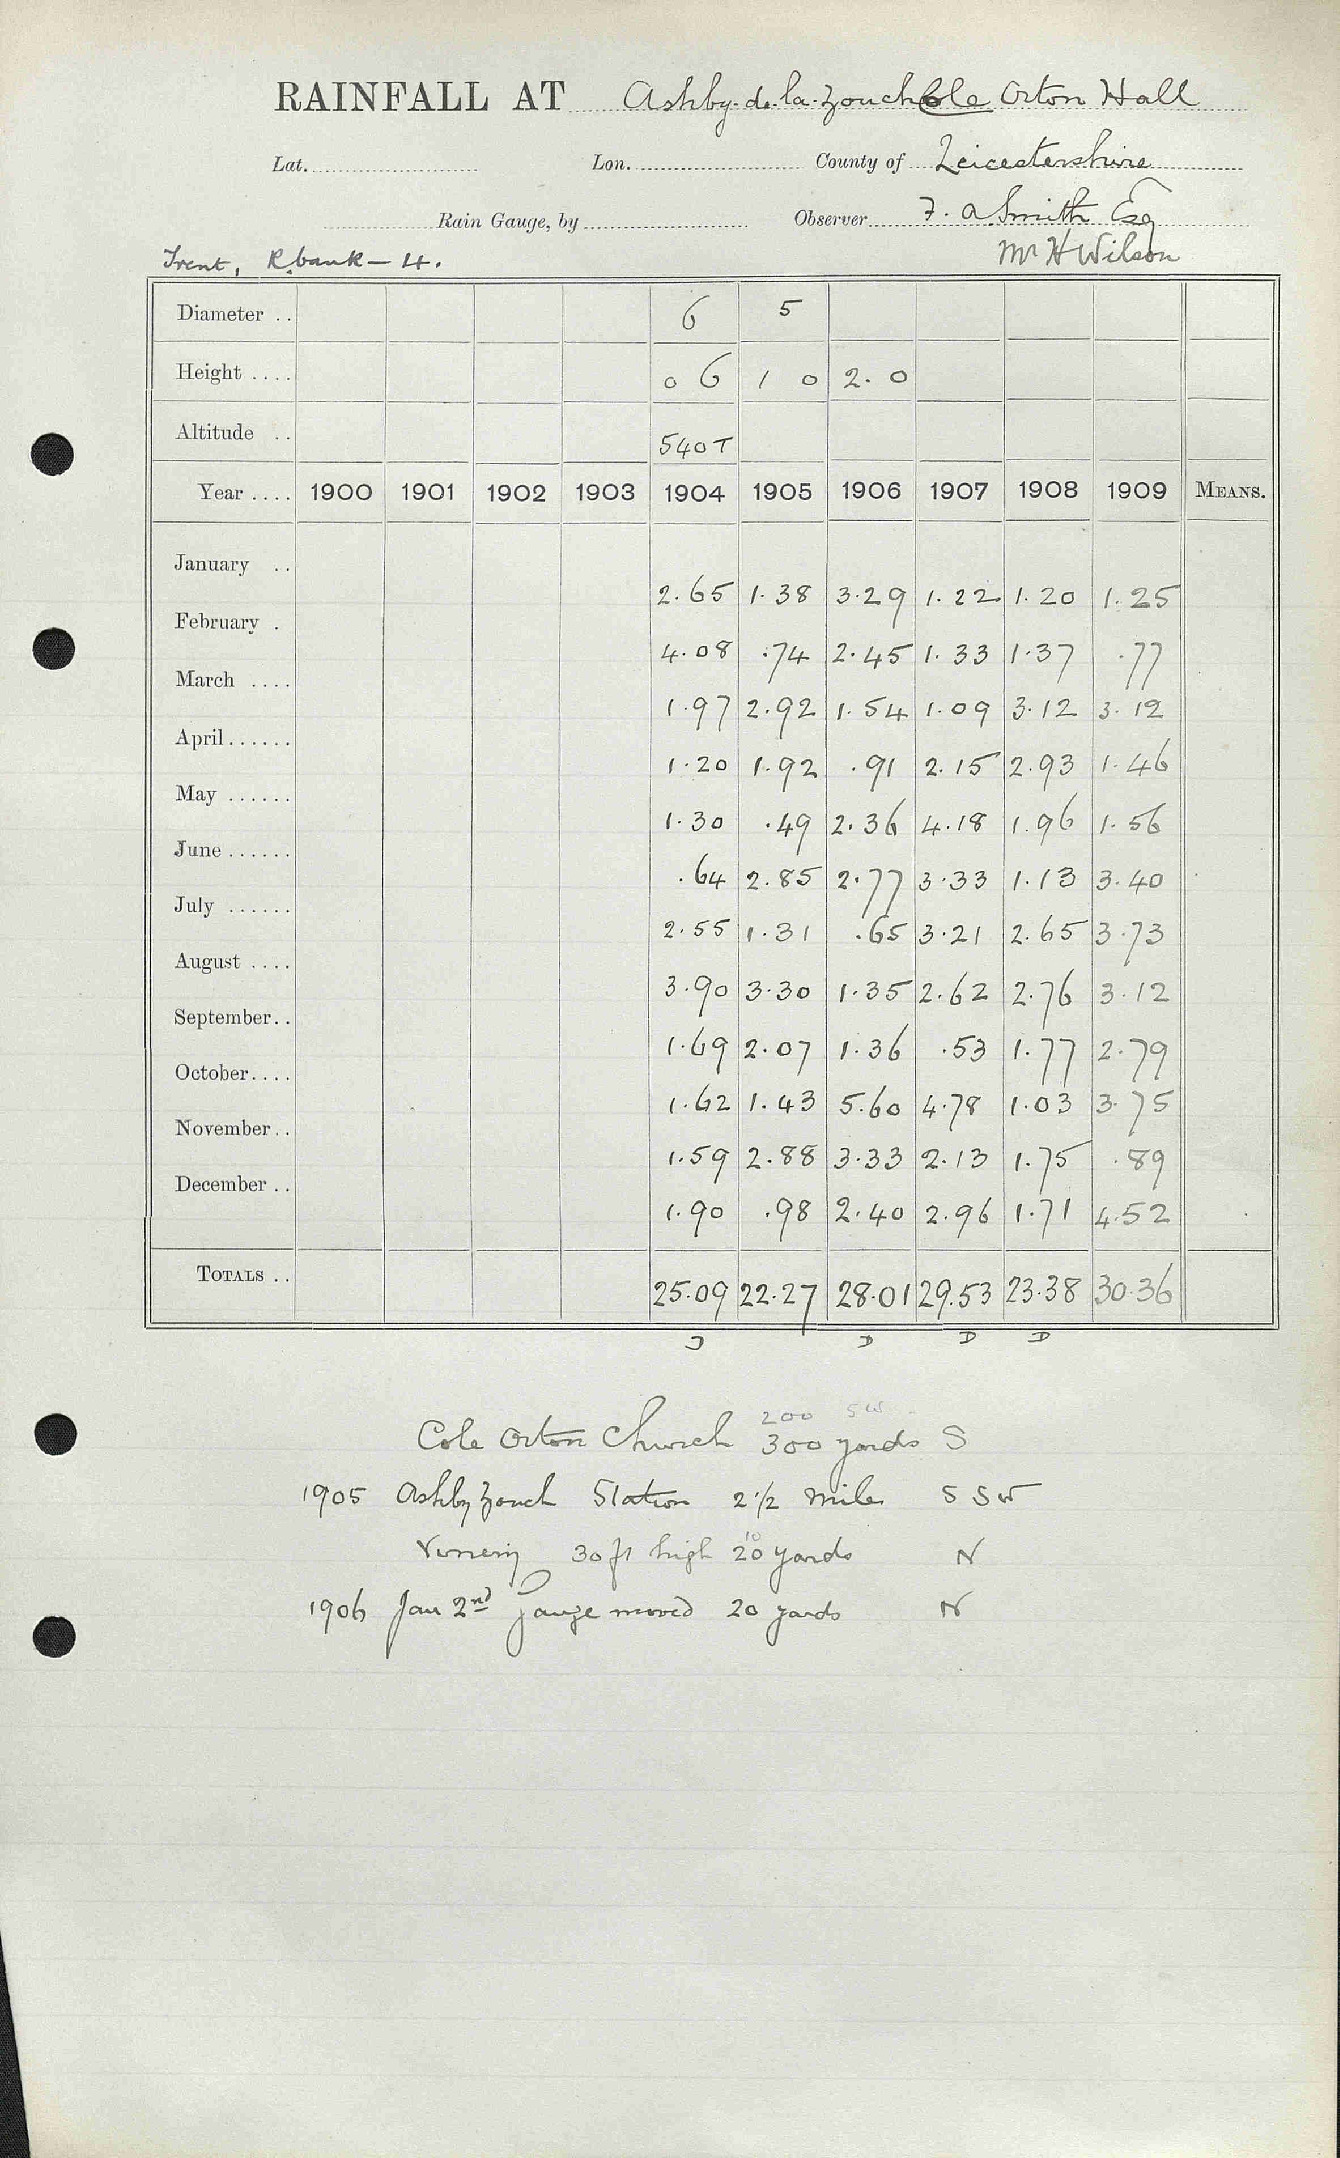 RAINFALL AT Ashby-de-la-Zouch Cole Orton Hall
Lat. Lon. County of Leicestershire
Rain Gauge, by Observer F. A Smith Esq
Trent, R. bank - 4. Mr H Wilson
Diameter .. 6 5
Height .... 0 6 1 0 2. 0
Altitude .. 540 T
Year .... 1900 1901 1902 1903 1904 1905 1906 1907 1908 1909 MEANS.
January .. 2.65 1.38 3.29 1.22 1.20 1.25
February . 4.08 .74 2.45 1.33 1.37 .77
March .... 1.97 2.92 1.54 1.09 3.12 3.12
April...... 1.20 1.92 .91 2.15 2.93 1.46
May ...... 1.30 .49 2.36 4.18 1.96 1.56
June ...... .64 2.85 2.77 3.33 1.13 3.40
July ...... 2.55 1.31 .65 3.21 2.65 3.73
August .... 3.90 3.30 1.35 2.62 2.76 3.12
September.. 1.69 2.07 1.36 .53 1.77 2.79
October.... 1.62 1.43 5.60 4.78 1.03 3.75
November.. 1.59 2.88 3.33 2.13 1.75 .89
December .. 1.90 .98 2.40 2.96 1.71 4.52
TOTALS .. 25.09 22.27 28.01 29.53 23.38 30.36
D D D
200 SW
Cole Orton Church 300 yards S
1905 Ashby Zouch Station 2 1/2 miles S S W
10
Vinery 30 ft high 20 yards N
1906 Jan 2nd gauge moved 20 yards N